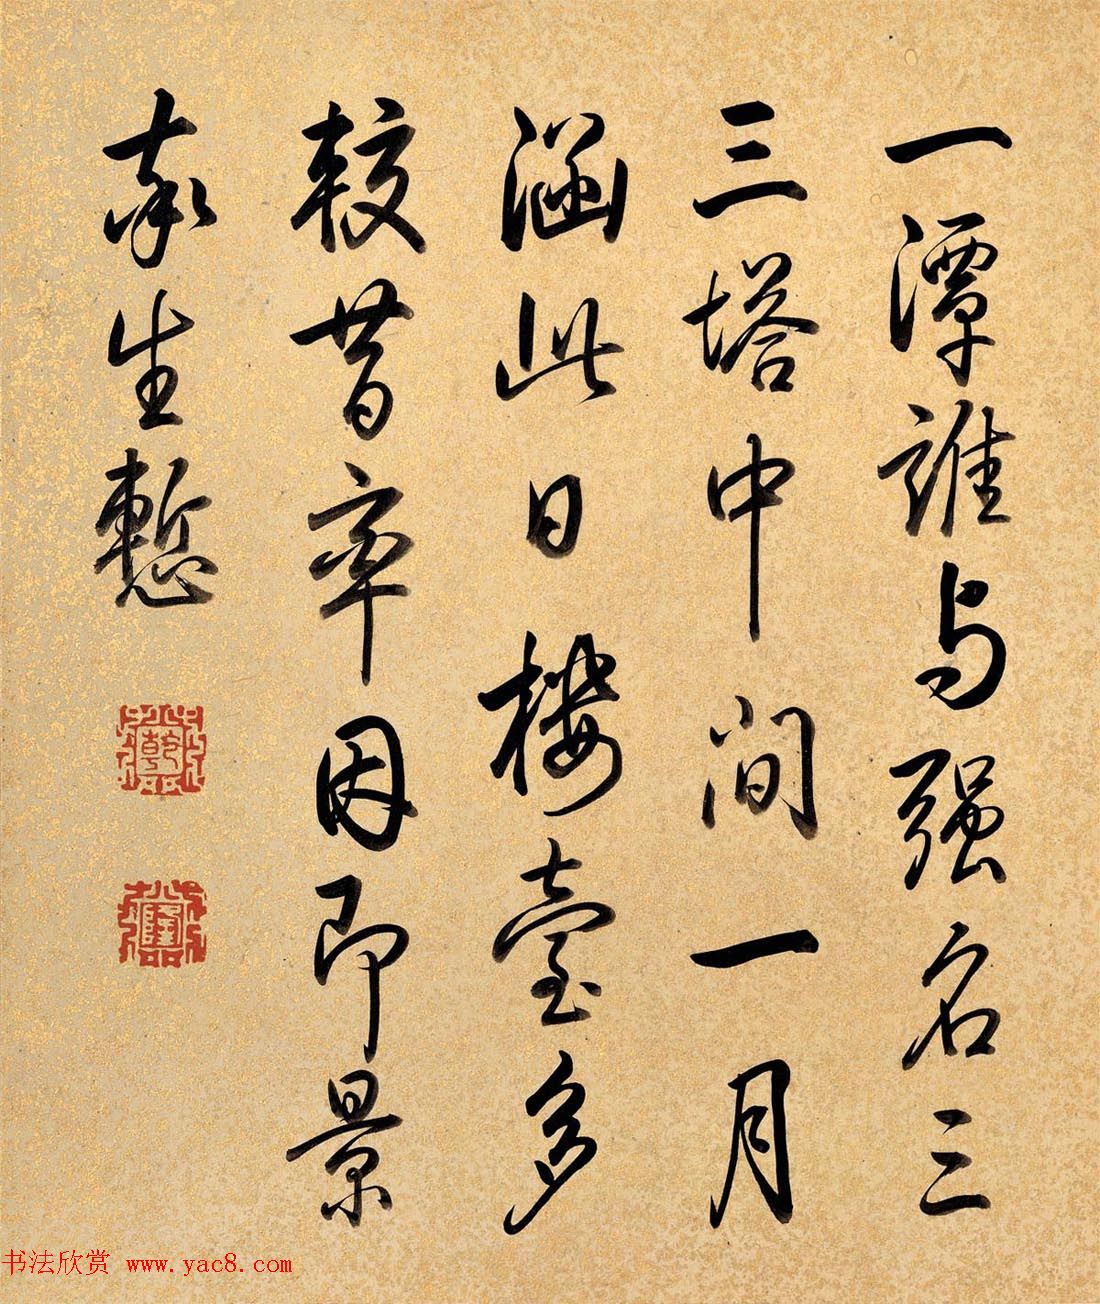 一潭誰与强名三
三塔中間一月
涵此日樓臺多
較昔率因即景
永生慙
乾
隆
书法欣赏 www.yac8.com